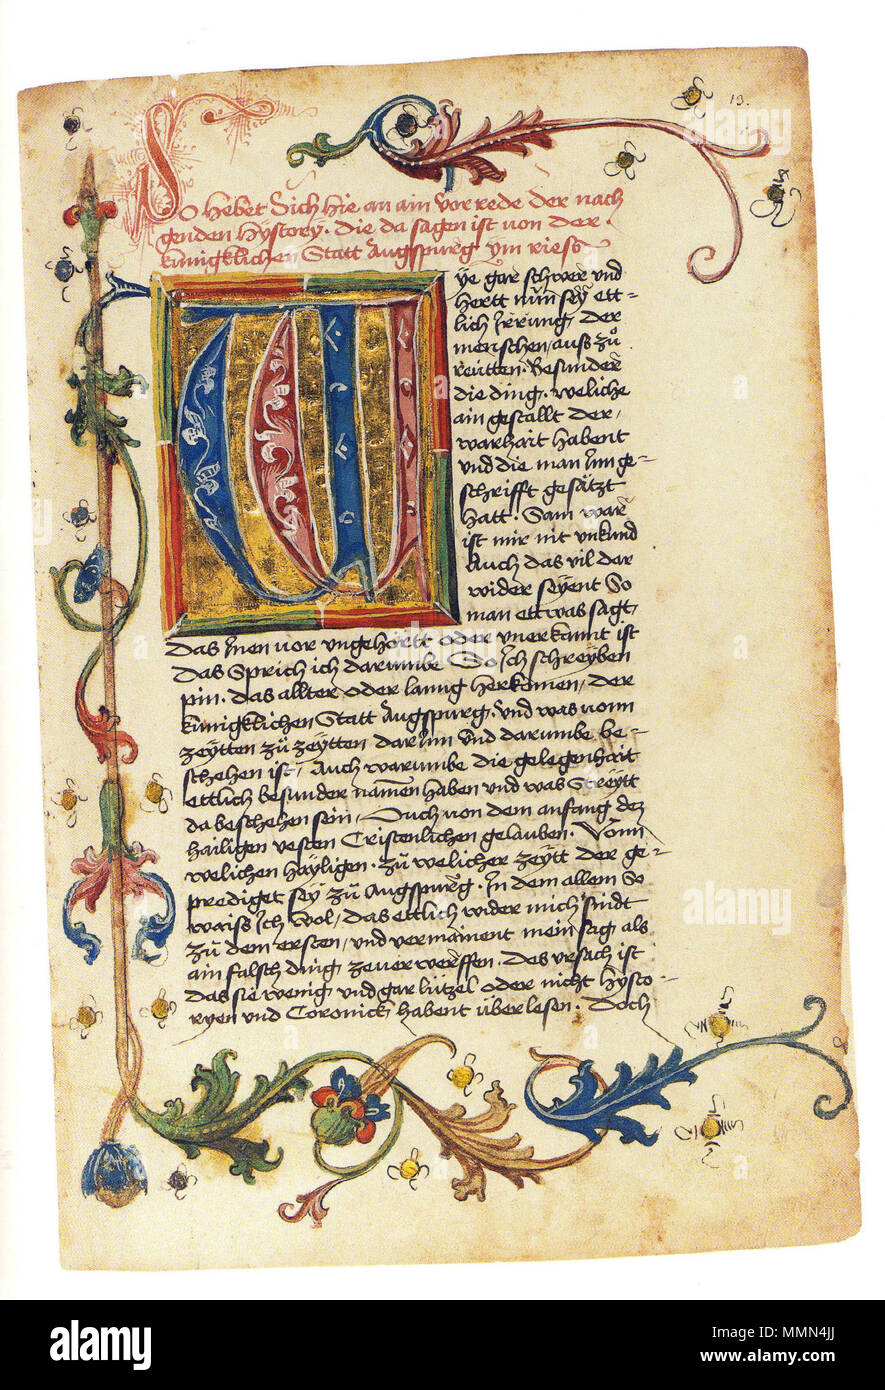 13.
So hebet Sich hie an ain vor rede der nach
genden hystory · die da sagen ist von der ·
kunigklichen Statt Augspurg ym rieso
Wye gar schwer und
hertt nun sey ett=
lich Irrung, der
menschen, auss zů
reutten. Besunder
die ding, weliche
ain gestallt der,
warhait habent
und die man Inn ge=
schrifft gesätzt
hatt. Sam war
ist mir nit unkund
Auch das vil dar
wider seyent So
man ettwas sagt,
Das Inen vor ungehortt oder unerkannt ist
Das Sprich ich darumbe So Ich schreyben
pin. das allter oder lanng herkomen, der
kunigklichen Statt Augspurg, und was vonn
zeytten zů zeytten darInn und darumbe be=
schehen ist, Auch warumbe die gelegenhait
ettlich besunder namen haben und was Streytt
da beschehen sein, Ouch von dem anfang dez
hailigen vesten Cristenlichen gelauben. Vonn
welichen häyligen. zů welicher zeytt der ge=
prediget sey zů Augspurg. In dem allem So
waiss Ich wol, das ettlich wider mich sindt
zů dem ersten, und vermainent mein sag als
ain falsch ding zeuerwerffen. Das ursach ist
das sie wenig und gar lützel oder nicht hysto=
ryen und Coronick habent überlesen. Doch
alamy
alamy
alamy
alamy
Image ID: MMN4JJ
www.alamy.com